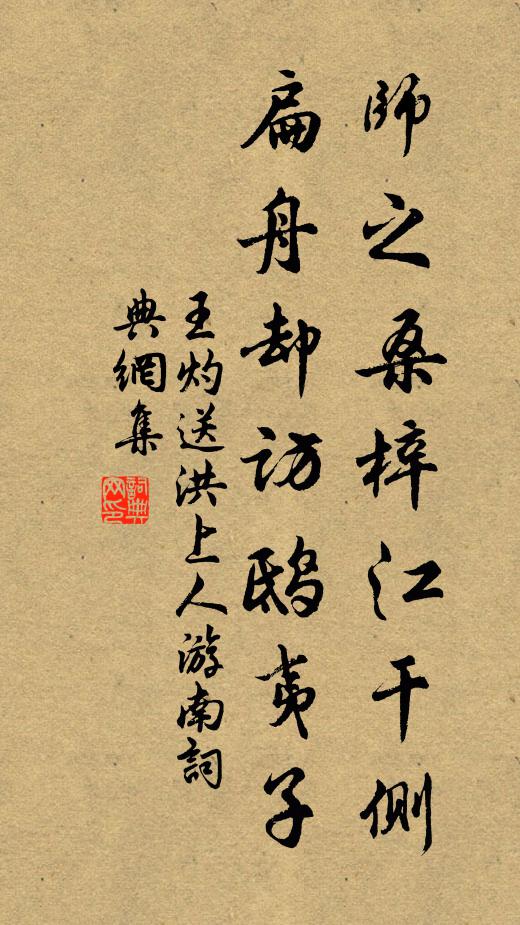 師之桑梓江干側
扁舟却訪鴟夷子
王灼送洪上人游南詞
典網集
詞典網印